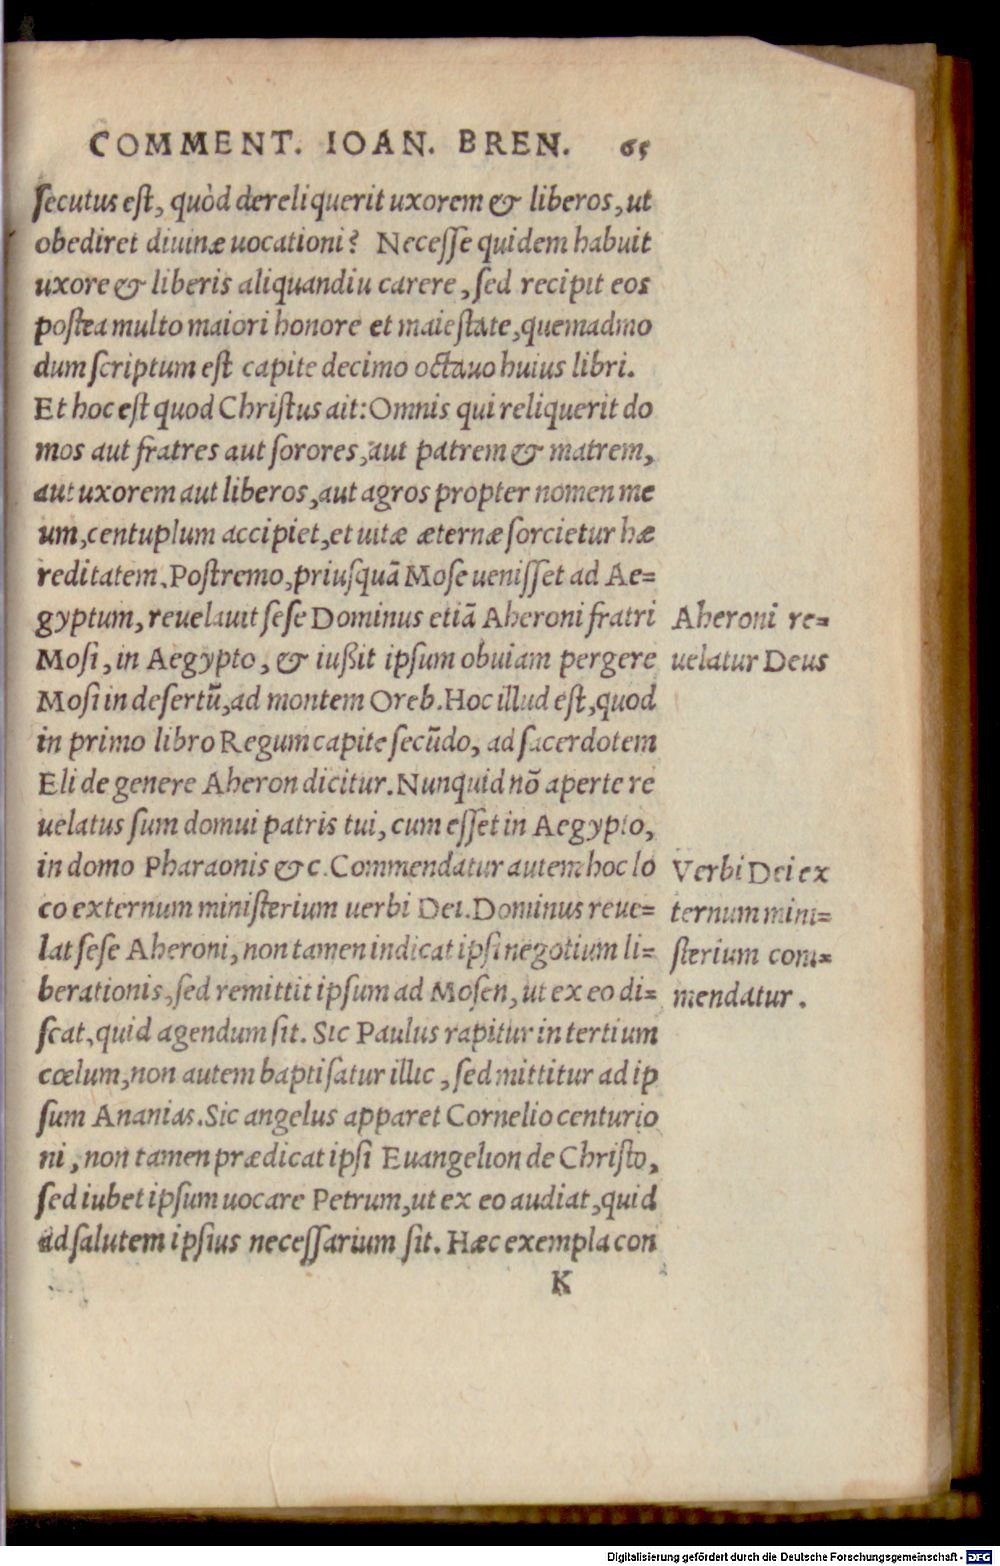 COMMENT. IOAN. BREN. 65
secutus est, quòd dereliquerit uxorem & liberos, ut
obediret diuinæ uocationi? Necesse quidem habuit
uxore & liberis aliquandiu carere, sed recipit eos
postea multo maiori honore et maiestate, quemadmo
dum scriptum est capite decimo octauo huius libri.
Et hoc est quod Christus ait: Omnis qui reliquerit do
mos aut fratres aut sorores, aut patrem & matrem,
aut uxorem aut liberos, aut agros propter nomen me
um, centuplum accipiet, et uitæ æternæ sorcietur hæ
reditatem. Postremo, priusquā Mose uenisset ad Ae=
gyptum, reuelauit sese Dominus etiā Aheroni fratri
Mosi, in Aegypto, & iußit ipsum obuiam pergere
Mosi in desertū, ad montem Oreb. Hoc illud est, quod
in primo libro Regum capite secūdo, ad sacerdotem
Eli de genere Aheron dicitur. Nunquid nō aperte re
uelatus sum domui patris tui, cum esset in Aegypto,
in domo Pharaonis & c. Commendatur autem hoc lo
co externum ministerium uerbi Dei. Dominus reue=
lat sese Aheroni, non tamen indicat ipsi negotium li=
berationis, sed remittit ipsum ad Mosen, ut ex eo di=
scat, quid agendum sit. Sic Paulus rapitur in tertium
cœlum, non autem baptisatur illic, sed mittitur ad ip
sum Ananias. Sic angelus apparet Cornelio centurio
ni, non tamen prædicat ipsi Euangelion de Christo,
sed iubet ipsum uocare Petrum, ut ex eo audiat, quid
ad salutem ipsius necessarium sit. Hæc exempla con
K
Aheroni re=
uelatur Deus
Verbi Dei ex
ternum mini=
sterium com=
mendatur.
Digitalisierung gefördert durch die Deutsche Forschungsgemeinschaft - DFG